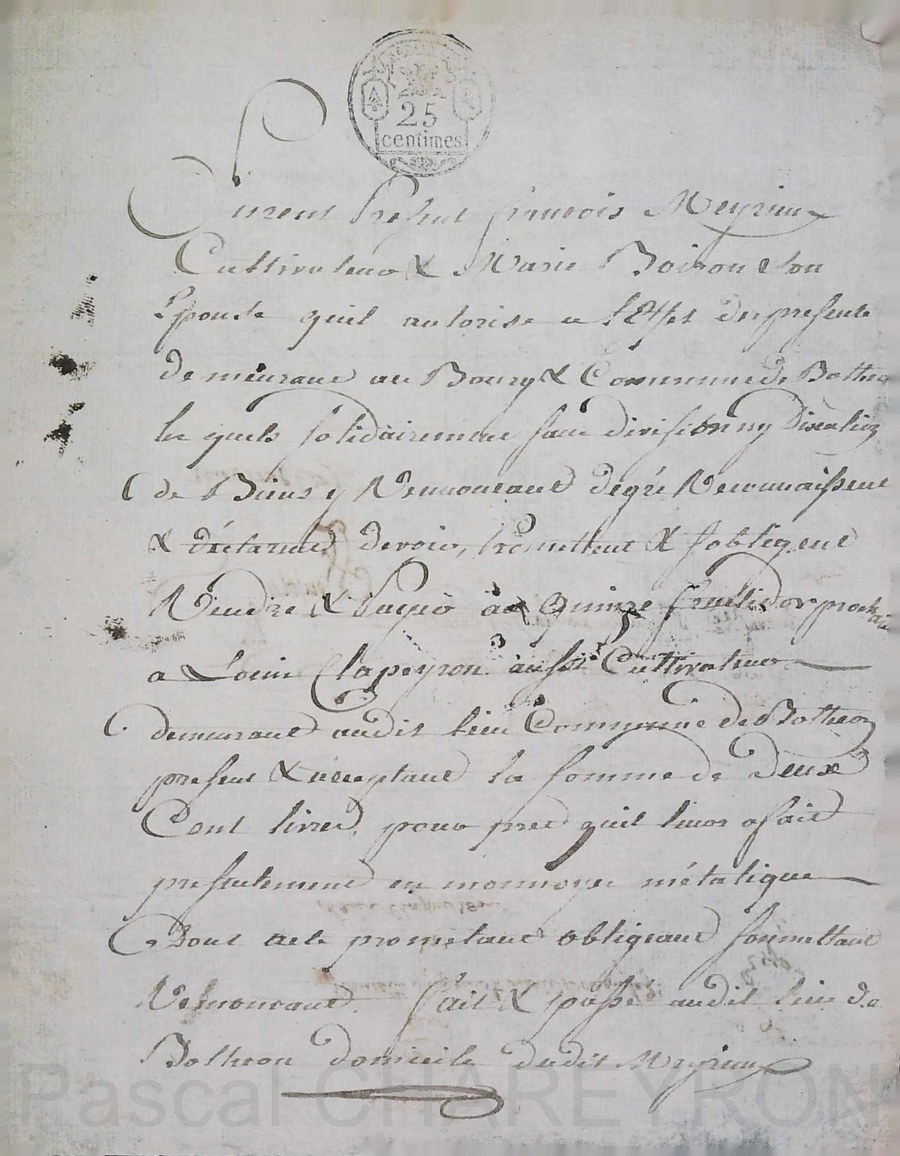 25
centimes
Furent Presents françois Meyrieux
Cultivateur & Marie Boiron Son
Epouse quil autorise a l'Effet des presente
demeurant au Bourg & Commune de Botheon
les quels solidairement sans division ny Discution
de Biens y Renoncant de gré Reconnaissent
& déclarent devoir, Promettent & s'obligent
Rendre & Payer au Quinze fructidor prochain
a Louis Clapeyron aussi Cultivateur
demeurant audit lieu Commune de Botheon
present & acceptant la somme de deux
Cent livres, pour pret quil leur a fait
presentement en monnoyes métalique
Dont acte prometant obligeant soumettant
Renoncant. fait & passé audit lieu de
Botheon domicile dudit Meyrieux
Pascal CHAREYRON